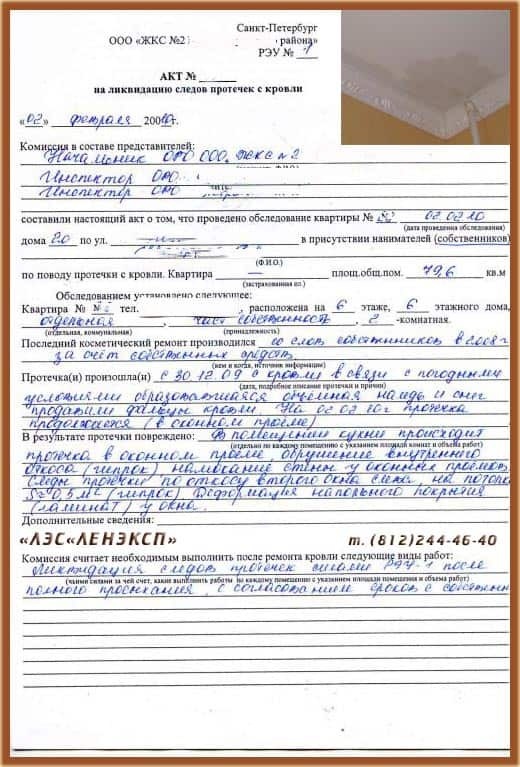 Санкт-Петербург
ООО «ЖКС №2 района»
РЭУ № 1
АКТ №
на ликвидацию следов протечек с кровли
«02» февраля 2010г.
Комиссия в составе представителей:
Начальник ОРО ООО ЖКС №2
Инспектор ОРО
Инспектор ОРО
составили настоящий акт о том, что проведено обследование квартиры № 02.02.10
(дата проведения обследования)
дома 20 по ул. в присутствии нанимателей (собственников)
(Ф.И.О.)
по поводу протечки с кровли. Квартира — площ.общ.пом. 79,6 кв.м
(застрахованная пл.)
Обследованием установлено следующее:
Квартира № тел. , расположена на 6 этаже, 6 этажного дома,
отдельная , част. собственность, 2 -комнатная.
(отдельная, коммунальная) (принадлежность)
Последний косметический ремонт производился со слов собственников в 2008г
за счёт собственных средств.
(кем и когда, источник информации)
Протечка(и) произошла(и) с 30.12.09 с кровли в связи с погодными
(дата, подробное описание протечки и причин)
условиями образовавшаяся объёмная наледь и снег
продавили фальцы кровли. На 02.02.10г протечка
продолжается (в оконном проёме)
В результате протечки повреждено: В помещении кухни происходит
(отдельно по каждому помещению с указанием площадей комнат и объема работ)
протечка в оконном проёме, обрушение внутреннего
откоса (гипрок) намокание стены у оконных проёмов
Следы протечки по откосу второго окна слева, на потолке
S=0,5м² (гипрок) Деформация напольного покрытия
(ламинат) у окна.
Дополнительные сведения:
«ЛЭС«ЛЕНЭКСП» т. (812)244-46-40
Комиссия считает необходимым выполнить после ремонта кровли следующие виды работ:
Ликвидация следов протечек силами РЭУ-1 после
(чьими силами за чей счет, какие выполнить работы по каждому помещению с указанием площади помещения и объема работ)
полного просыхания, с согласованием сроков с собственн